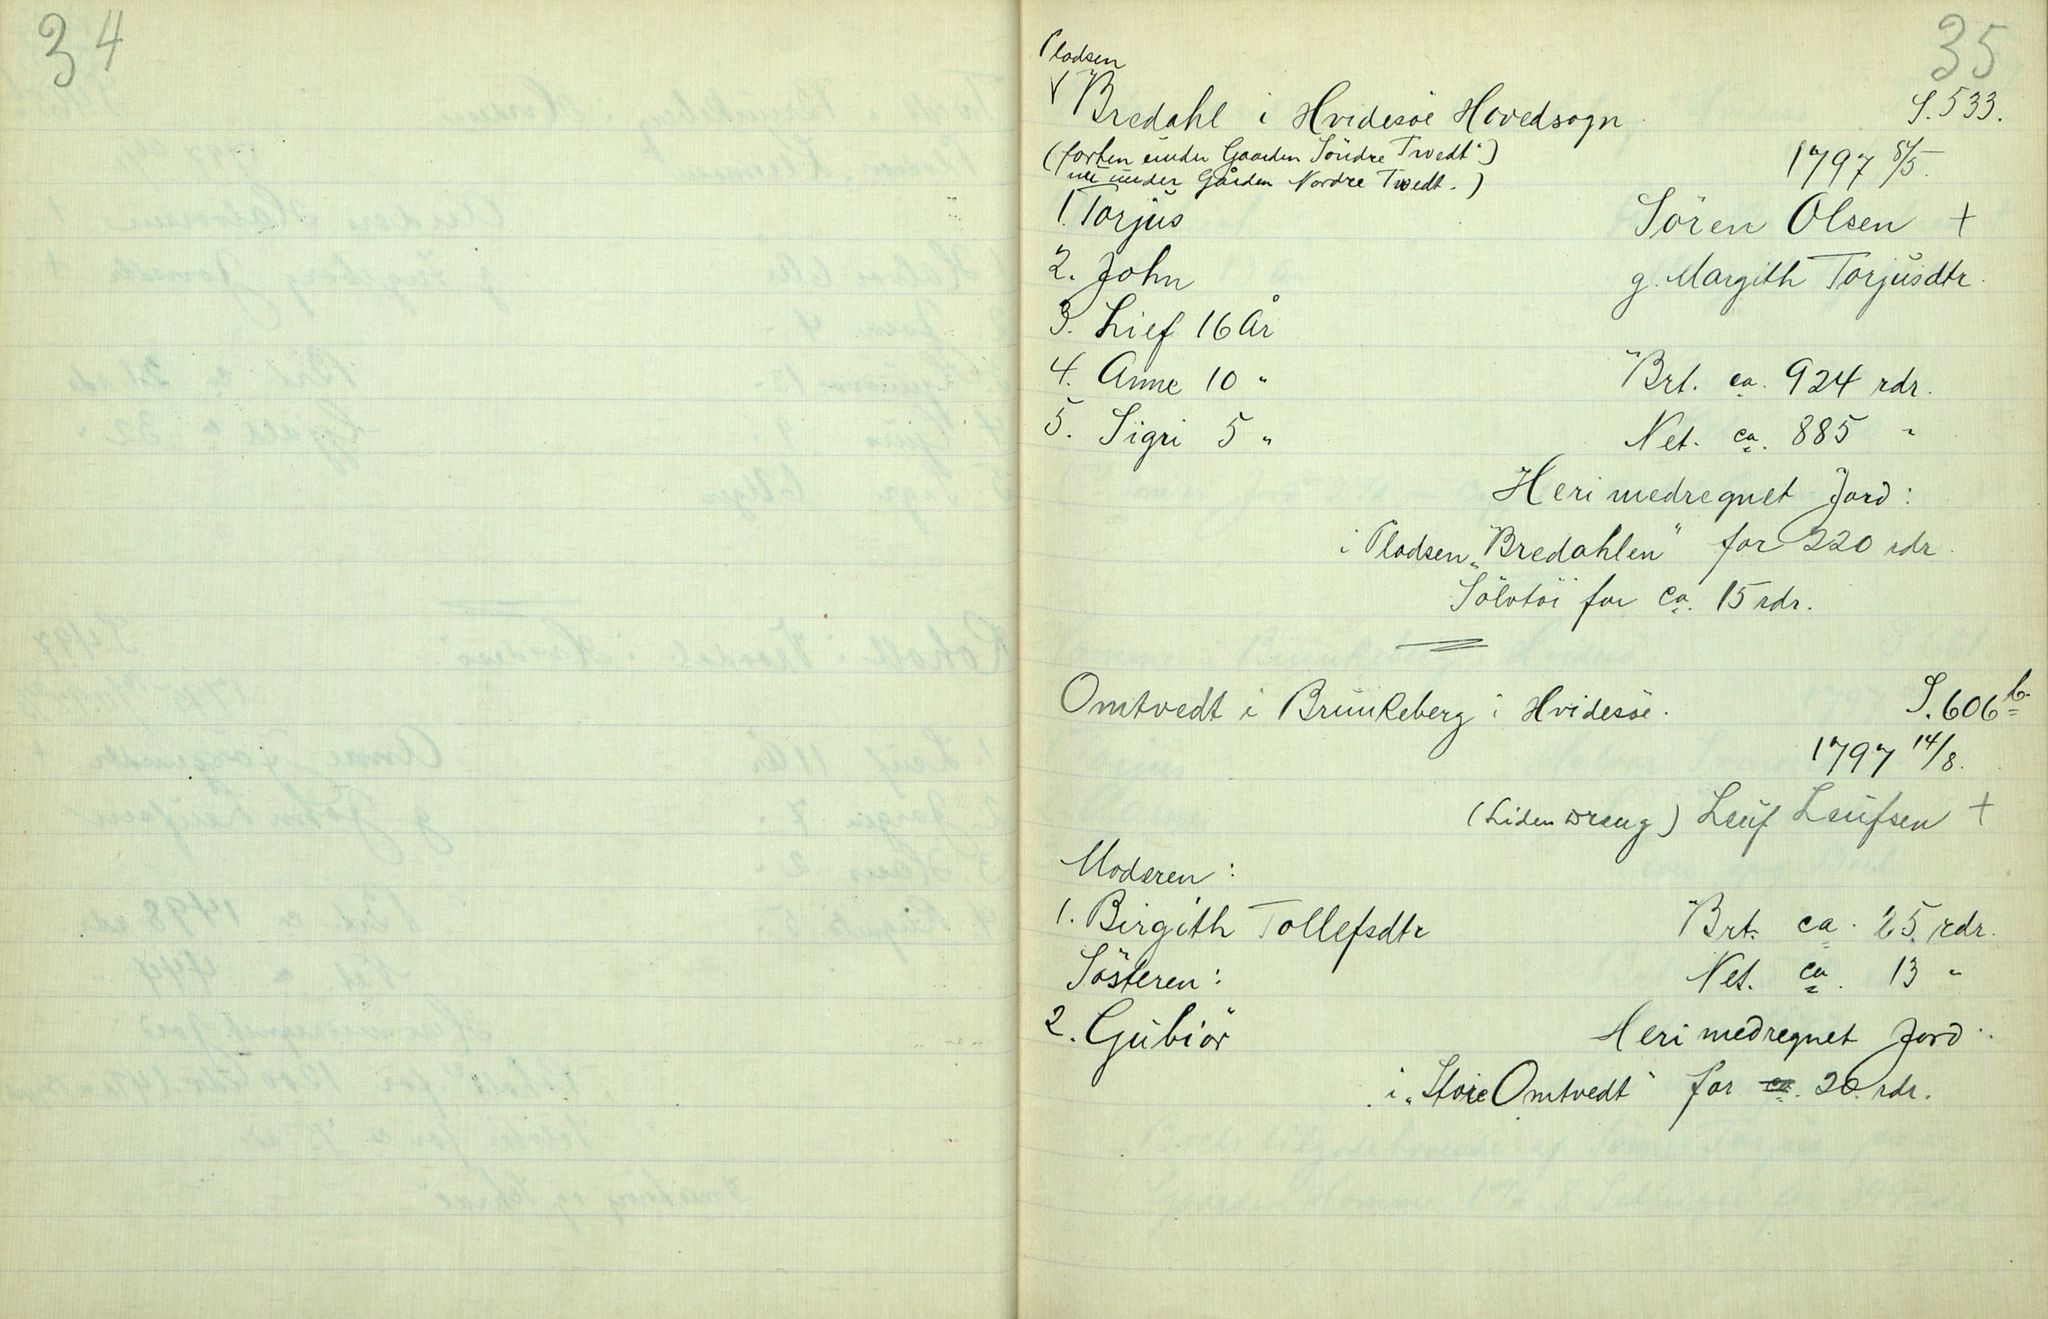 34
35
Pladsen
Bredahl i Hvidesöe Hovedsogn
S. 533.
(forhen under Gaarden Söndre Tvedt")
1797 8/5.
(nu under Gården Nordre Tvedt.)
1. Torjus
Sören Olsen +
2. John
g. Margith Torjusdtr.
3. Lief 16 År
4. Anne 10 "
Brt. ca. 924 rdr.
5. Sigri 5 "
Net. ca. 885 "
Heri medregnet Jord:
i Pladsen „Bredahlen" for 220 rdr.
Sölvtöi for ca. 15 rdr.
Omtvedt i Brunkeberg i Hvidesöe.
S. 606 b.
1797 14/8.
(Liden Dreng) Leuf Leufsen +
Moderen:
1. Birgith Tollefsdtr
Brt. ca. 25 rdr.
Søsteren:
Net. ca. 13 "
2. Gubiör
Heri medregnet Jord:
i „Store Omtvedt" for ca. 20 rdr.